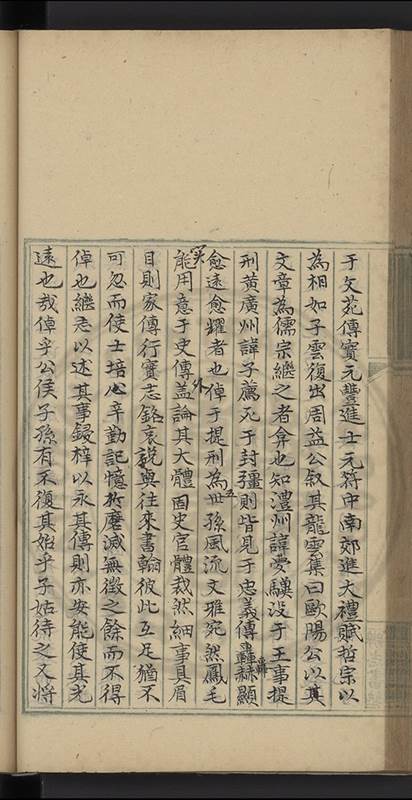 于文苑傳實元豐進士元符中南郊進大禮賦哲宗以
為相如子雲復出周益公叙其龍雲集曰歐陽公以其
文章為儒宗繼之者弇也知澧州諱夢驥没于王事提
刑黄廣州諱子薦死于封疆則皆見于忠義傳轟轟赫顯
愈遠愈耀者也倬于提刑為五世孫風流文雅宛然鳳毛
能用意于史傳外盖論其大體固史官體裁然細事具眉
目則家傳行實志銘哀說與往來書翰彼此互足猶不
可忽而使士培必辛勤記憶於磨滅無徵之餘而不得
倬也繼志以述其事鋟梓以永其傳則亦安能使其光
遠也哉倬乎公侯子孫有不復其始乎子姑待之又將